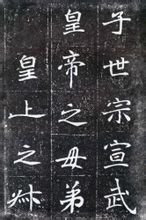 子世宗宣武
皇帝之母弟
皇上之𡭗